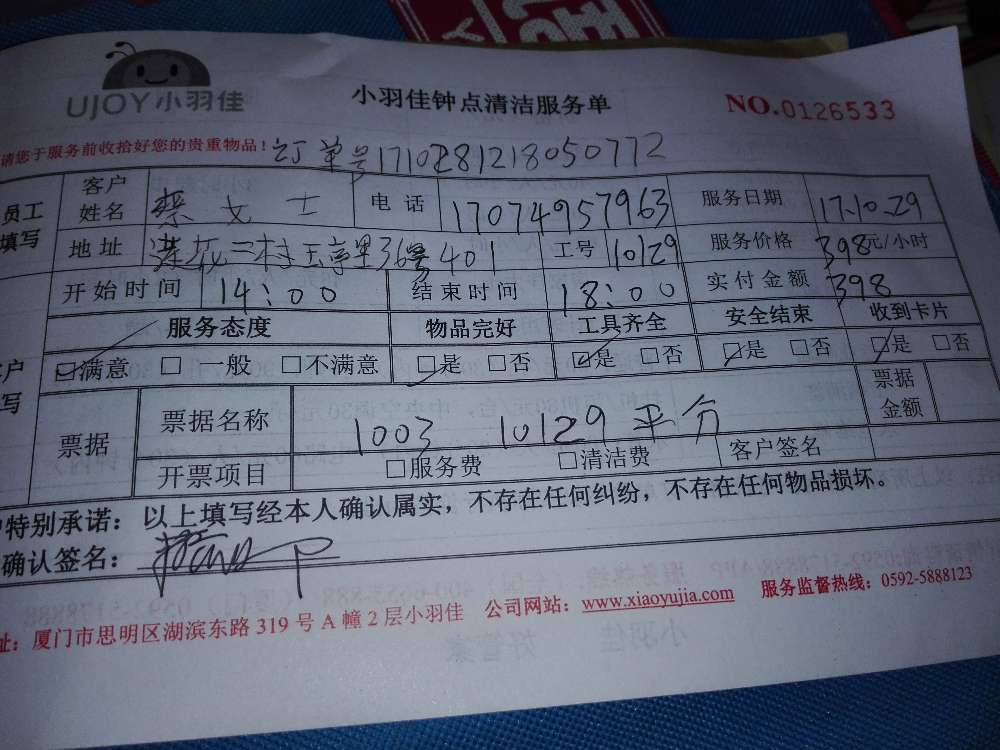 UJOY小羽佳
小羽佳钟点清洁服务单
NO.0126533
请您于服务前收拾好您的贵重物品！订单号1710281218050772
员工填写 客户姓名 蔡女士 电话 17074957963 服务日期 17.10.29
地址 莲花二村玉亭里36号401 工号 10129 服务价格 398元/小时
开始时间 14:00 结束时间 18:00 实付金额 398
服务态度 物品完好 工具齐全 安全结束 收到卡片
☑满意 □一般 □不满意 ☑是 □否 ☑是 □否 ☑是 □否 ☑是 □否
票据 票据名称 1003 10129 平分 票据金额
开票项目 □服务费 □清洁费 客户签名
特别承诺：以上填写经本人确认属实，不存在任何纠纷，不存在任何物品损坏。
确认签名：
址：厦门市思明区湖滨东路319号A幢2层小羽佳 公司网站：www.xiaoyujia.com 服务监督热线：0592-5888123